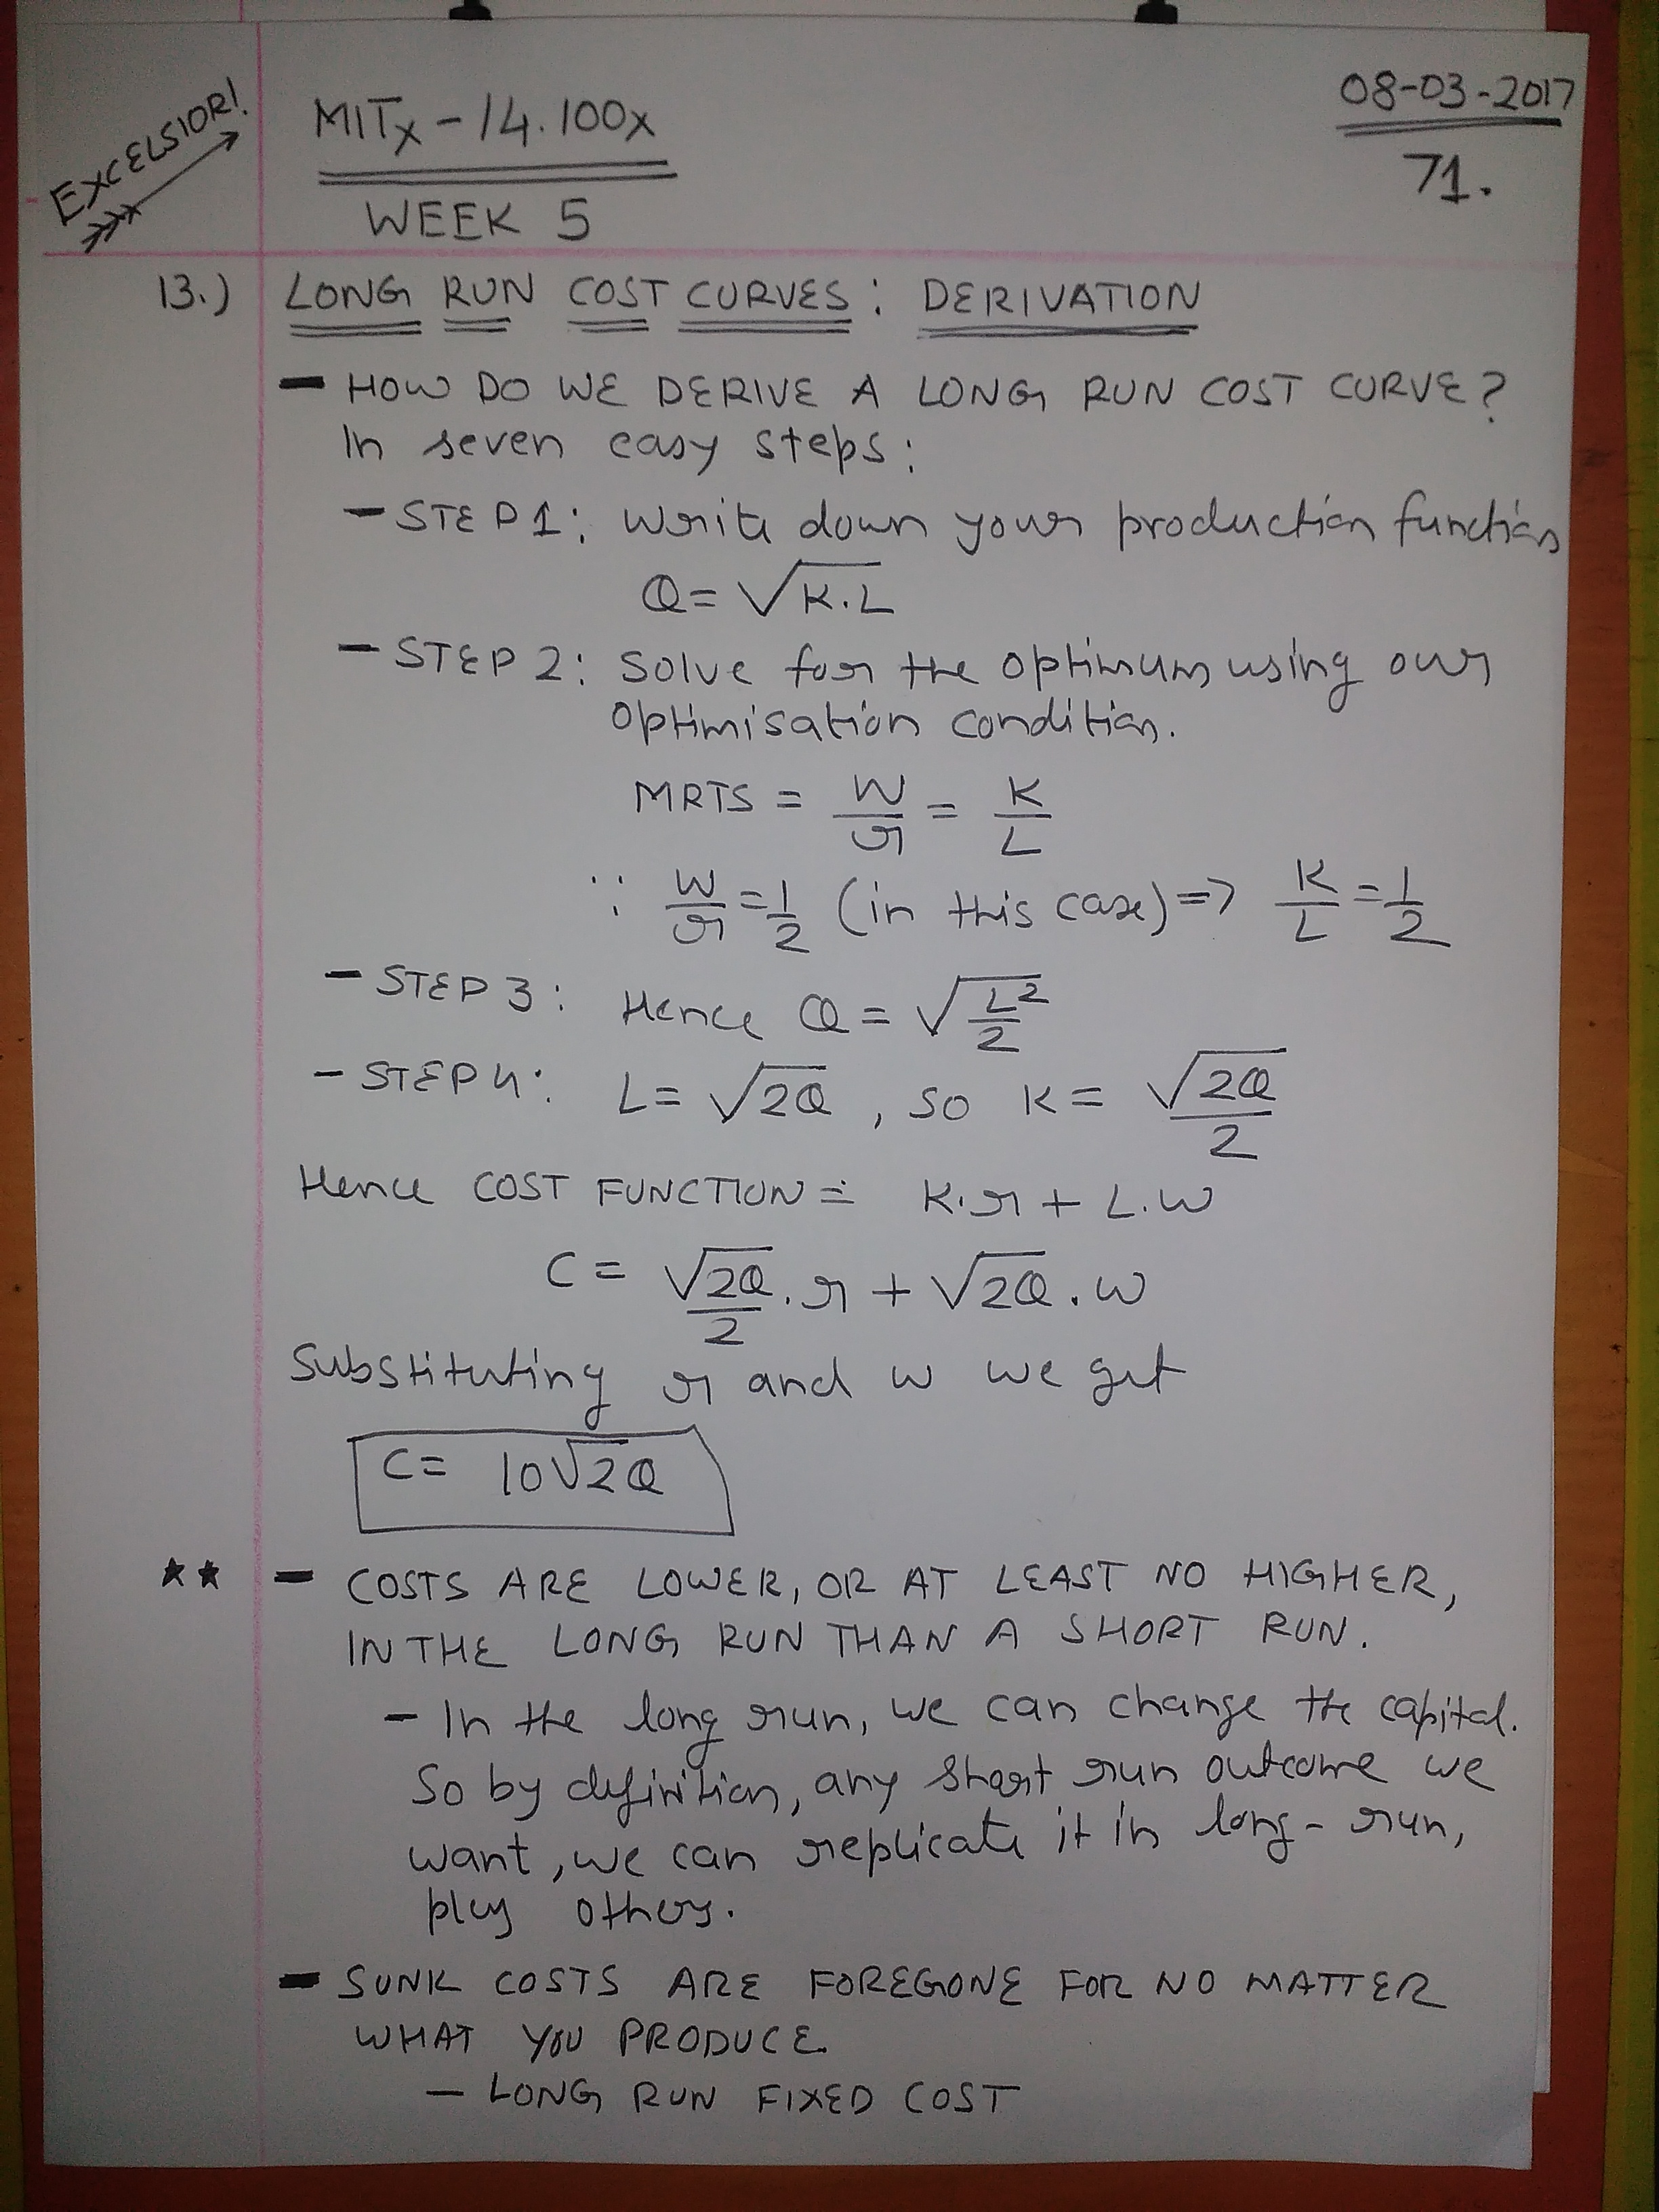 EXCELSIOR!
MITx - 14.100x
WEEK 5
08-03-2017
71.
13.) LONG RUN COST CURVES: DERIVATION
- HOW DO WE DERIVE A LONG RUN COST CURVE?
In seven easy steps:
- STEP 1: Write down your production function
Q = √K.L
- STEP 2: Solve for the optimum using our
optimisation condition.
MRTS = W/r = K/L
∵ W/r = 1/2 (in this case) => K/L = 1/2
- STEP 3: Hence Q = √L²/2
- STEP 4: L = √2Q, SO K = √2Q/2
Hence COST FUNCTION = K.r + L.w
C = √2Q/2 . r + √2Q . w
Substituting r and w we get
C = 10√2Q
★★ - COSTS ARE LOWER, OR AT LEAST NO HIGHER,
IN THE LONG RUN THAN A SHORT RUN.
- In the long run, we can change the capital.
So by definition, any short run outcome we
want, we can replicate it in long-run,
plus others.
- SUNK COSTS ARE FOREGONE FOR NO MATTER
WHAT YOU PRODUCE.
- LONG RUN FIXED COST